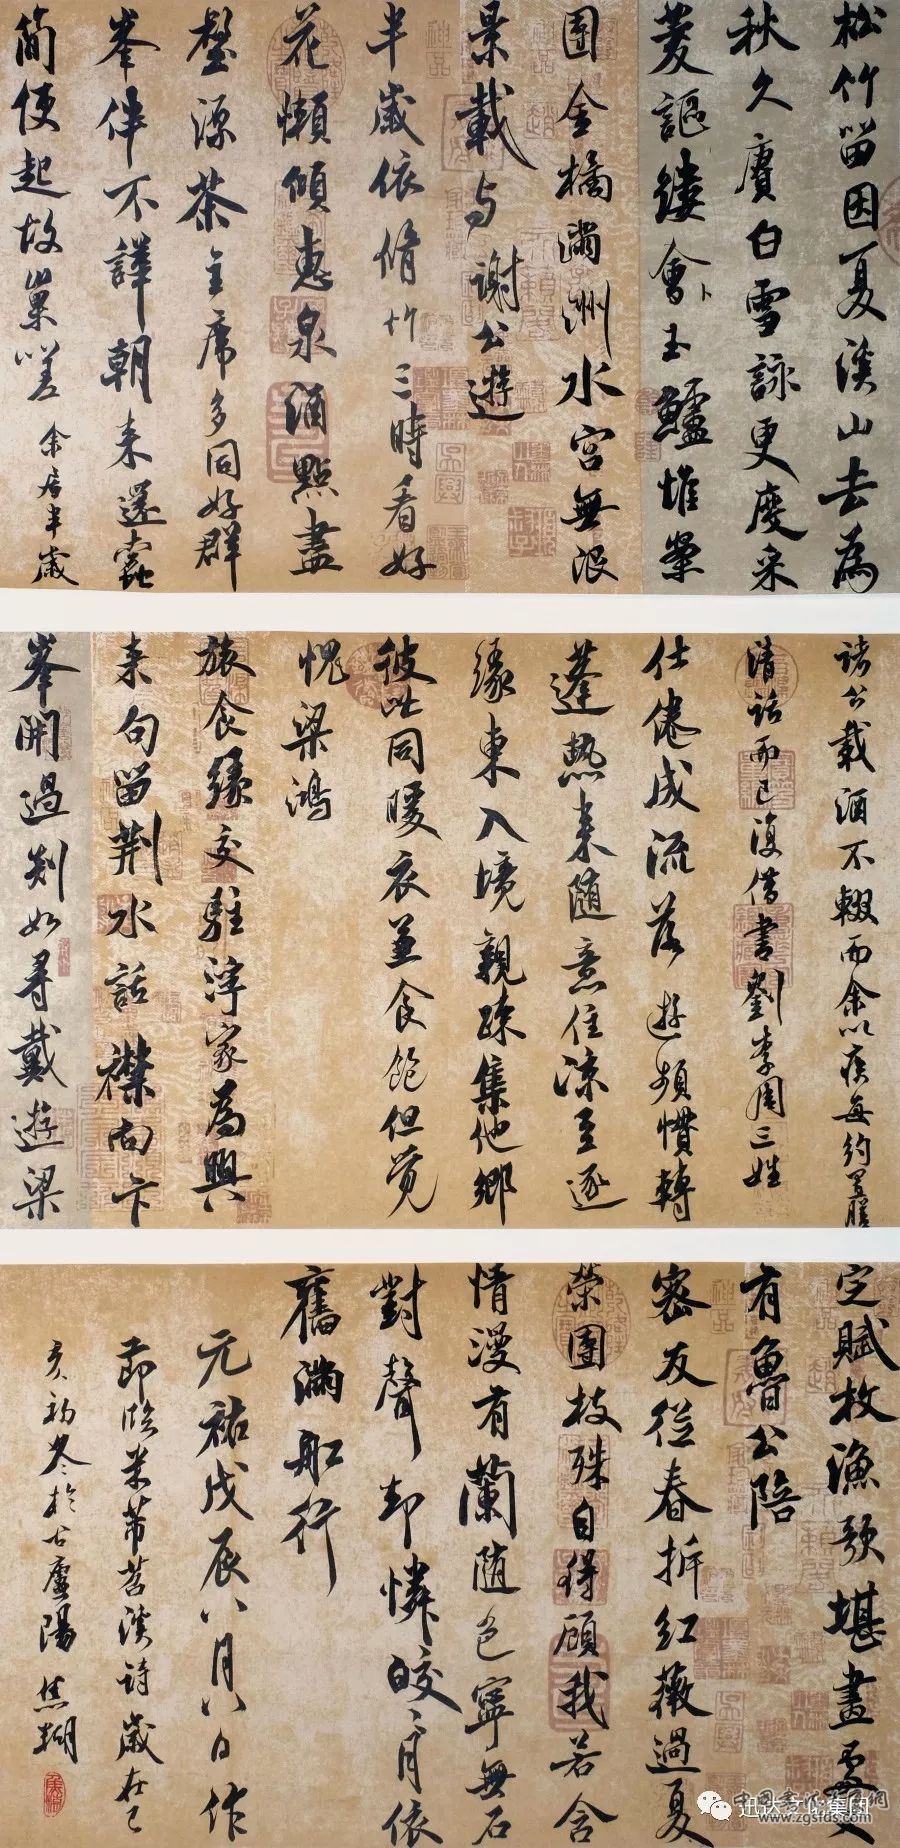 松竹留因夏溪山去為
秋久賡白雪詠更度采
菱謳縷會卜玉鱸堆案
團金橘滿洲水宮無限
景載与謝公遊
半歲依脩竹三時看好
花懶傾惠泉酒點盡
壑源茶主席多同好群
峯伴不譁朝來還蠹
簡便起故巢嗟 余居半歲
諸公載酒不輟而余以疾每約置膳
清話而已復借書劉李周三姓
仕倦成流落遊頻慣轉
蓬熱來隨意住涼至逐
緣東入境親疎集他鄉
彼此同暖衣兼食飽但覺
愧梁鴻
旅食緣交駐浮家為興
來句留荊水話襟向卞
峯開過剡如尋戴遊梁
定賦枚漁歌堪畫處又
有魯公陪
密友從春拆紅薇過夏
榮團枝殊自得顧我若含
情漫有蘭隨色寧無石
對聲却憐皎皎月依
舊滿船行
元祐戊辰八月八日作
節臨米芾苕溪詩歲在己
亥初冬於古盧陽 焦
迅达文化集团
www.zgsfds.com